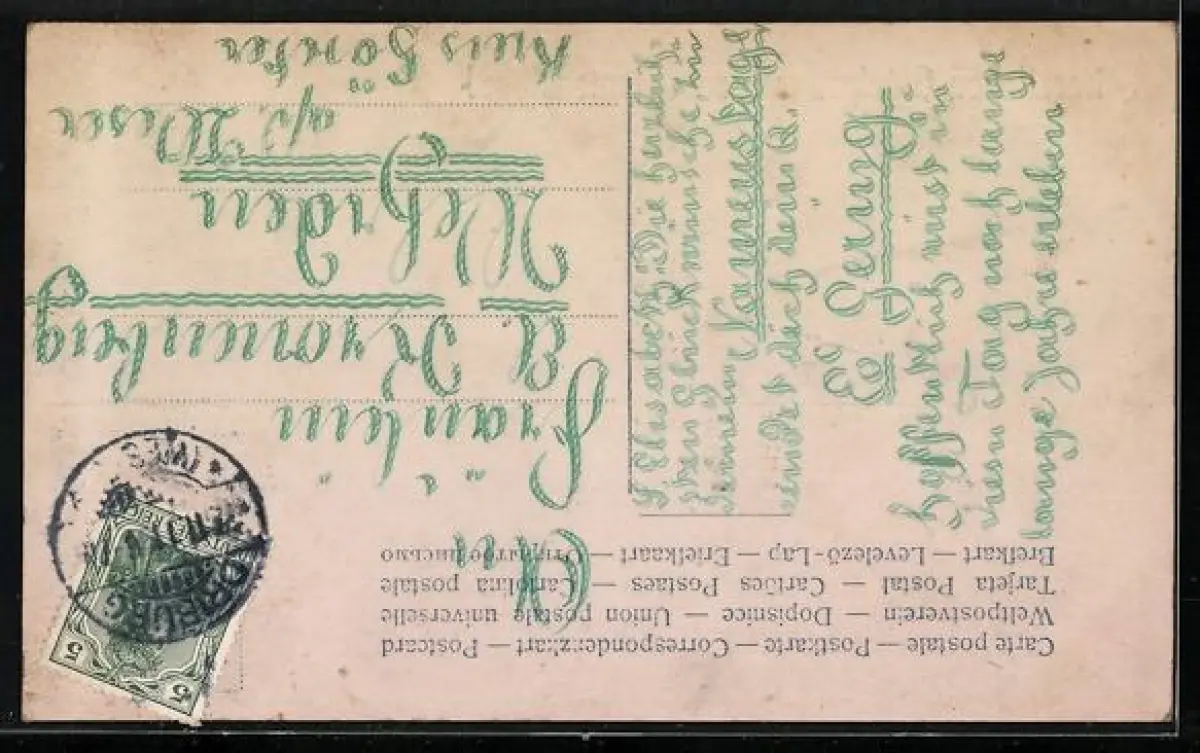 Carte postale — Postkarte — Correspondenzkart — Postcard
Weltpostverein — Dopisnice — Union postale universelle
Tarjeta Postal — Cartões Postaes — Cartolina postale
Brefkart — Levelező-Lap — Briefkaart — Открытое письмо
An
Fräulein
El Kronenberg
Wehrden
a/d. Weser
Kreis Höxter
L. Elisabeth! Die herzlich-
sten Glückwünsche zu
Deinem Namenstage
sendet Dich dein Q.
E. Gering
Hoffentlich wirst im
diesen Tag noch lange
lange Jahre erleben
5
5
DRIBURG
(WES